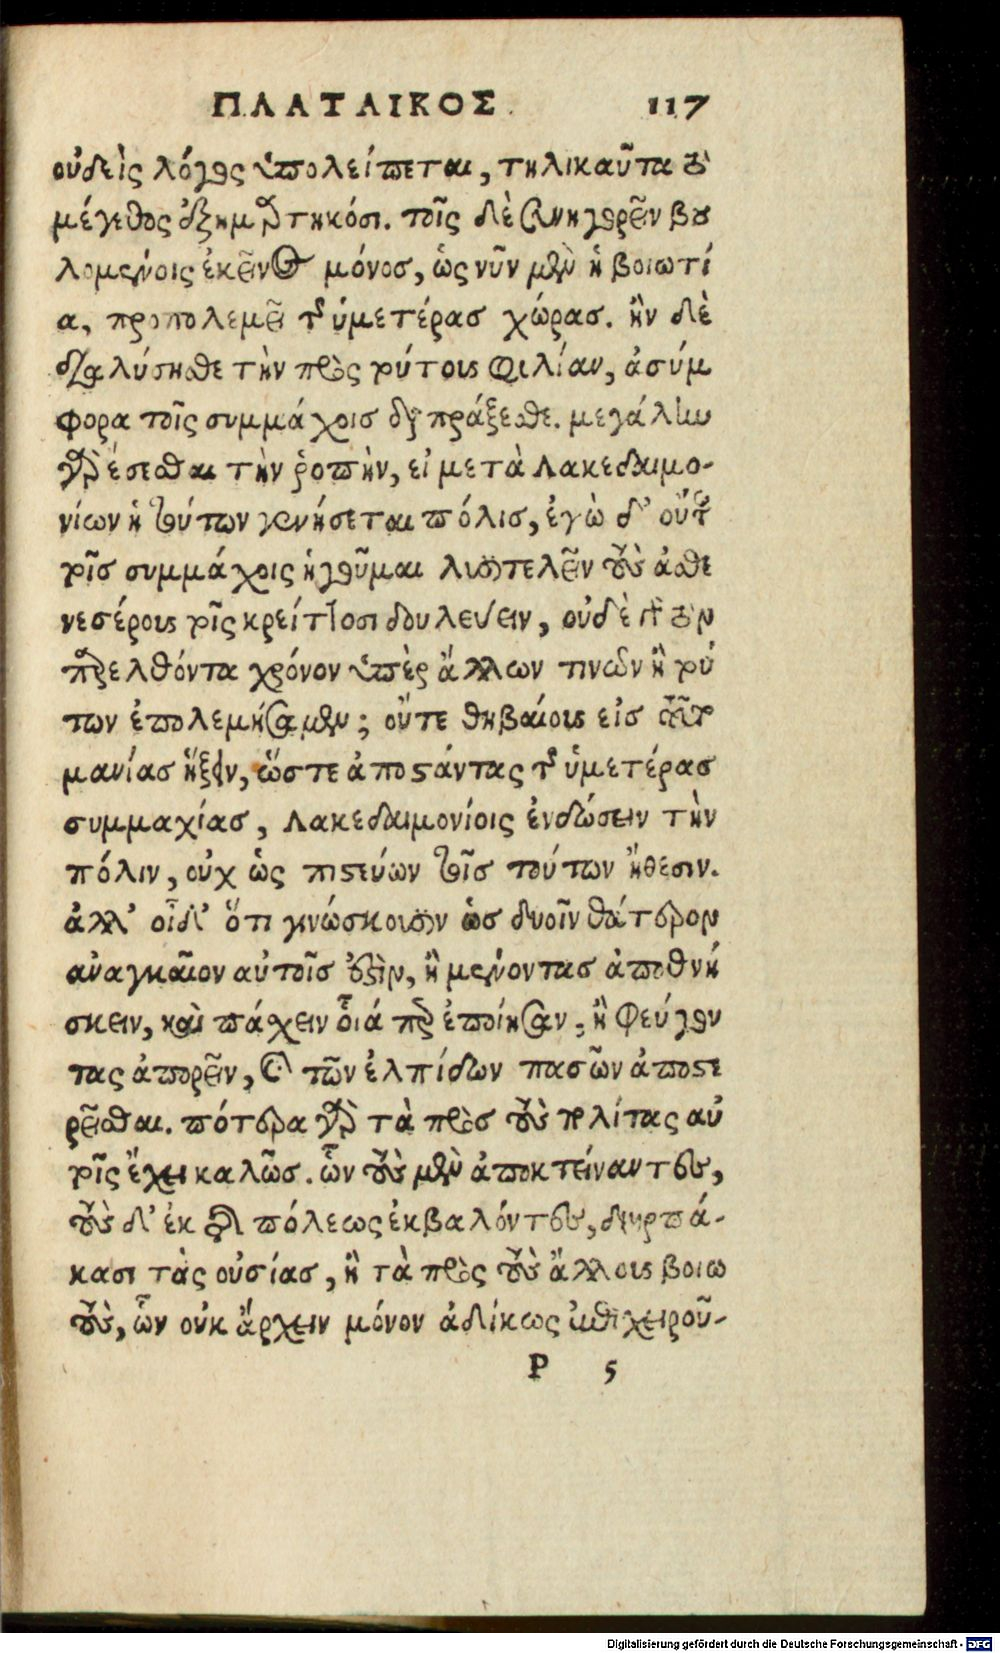 ΠΛΑΤΑΙΚΟΣ. 117
οὐδεὶς λόγος ὑπολείπεται, τηλικαῦτα τὸ
μέγεθος ἐξημαρτηκόσι. τοῖς δὲ συνηγορεῖν βου
λομένοις ἐκεῖνος μόνος, ὡς νῦν μὲν ἡ βοιωτί
α, προπολεμεῖ τῆς ὑμετέρας χώρας. ἢν δὲ
διαλύσησθε τὴν πρὸς τούτους φιλίαν, ἀσύμ
φορα τοῖς συμμάχοις διαπράξεσθε. μεγάλην
γὰρ ἔσεσθαι τὴν ῥοπὴν, εἰ μετὰ Λακεδαιμο-
νίων ἡ τούτων γενήσεται πόλις, ἐγὼ δ' οὔτε
τοῖς συμμάχοις ἡγοῦμαι λυσιτελεῖν τοὺς ἀσθε
νεστέρους τοῖς κρείττοσι δουλεύειν, οὐδὲ γὰρ τὸν
παρελθόντα χρόνον ὑπὲρ ἄλλων τινῶν ἢ τού
των ἐπολεμήσαμεν; οὔτε θηβαίους εἰς τοῦτο
μανίας ἥξειν, ὥστε ἀποστάντας τῆς ὑμετέρας
συμμαχίας, Λακεδαιμονίοις ἐνδώσειν τὴν
πόλιν, οὐχ ὡς πιστεύων τοῖς τούτων ἤθεσιν.
ἀλλ' οἶδ' ὅτι γινώσκουσιν ὡς δυοῖν θάτερον
ἀναγκαῖον αὐτοῖς ἐστὶν, ἢ μένοντας ἀποθνή
σκειν, καὶ πάσχειν οἷά περ ἐποίησαν, ἢ φεύγον
τας ἀπορεῖν, καὶ τῶν ἐλπίδων πασῶν ἀποστε
ρεῖσθαι. πότερα γὰρ τὰ πρὸς τοὺς πολίτας αὐ
τοῖς ἔχει καλῶς. ὧν τοὺς μὲν ἀποκτείναντες,
τοὺς δ' ἐκ τῆς πόλεως ἐκβαλόντες, διηρπά-
κασι τὰς οὐσίας, ἢ τὰ πρὸς τοὺς ἄλλους βοιω
τοὺς, ὧν οὐκ ἄρχειν μόνον ἀδίκως ἐπιχειροῦ-
P 5
Digitalisierung gefördert durch die Deutsche Forschungsgemeinschaft - DFG